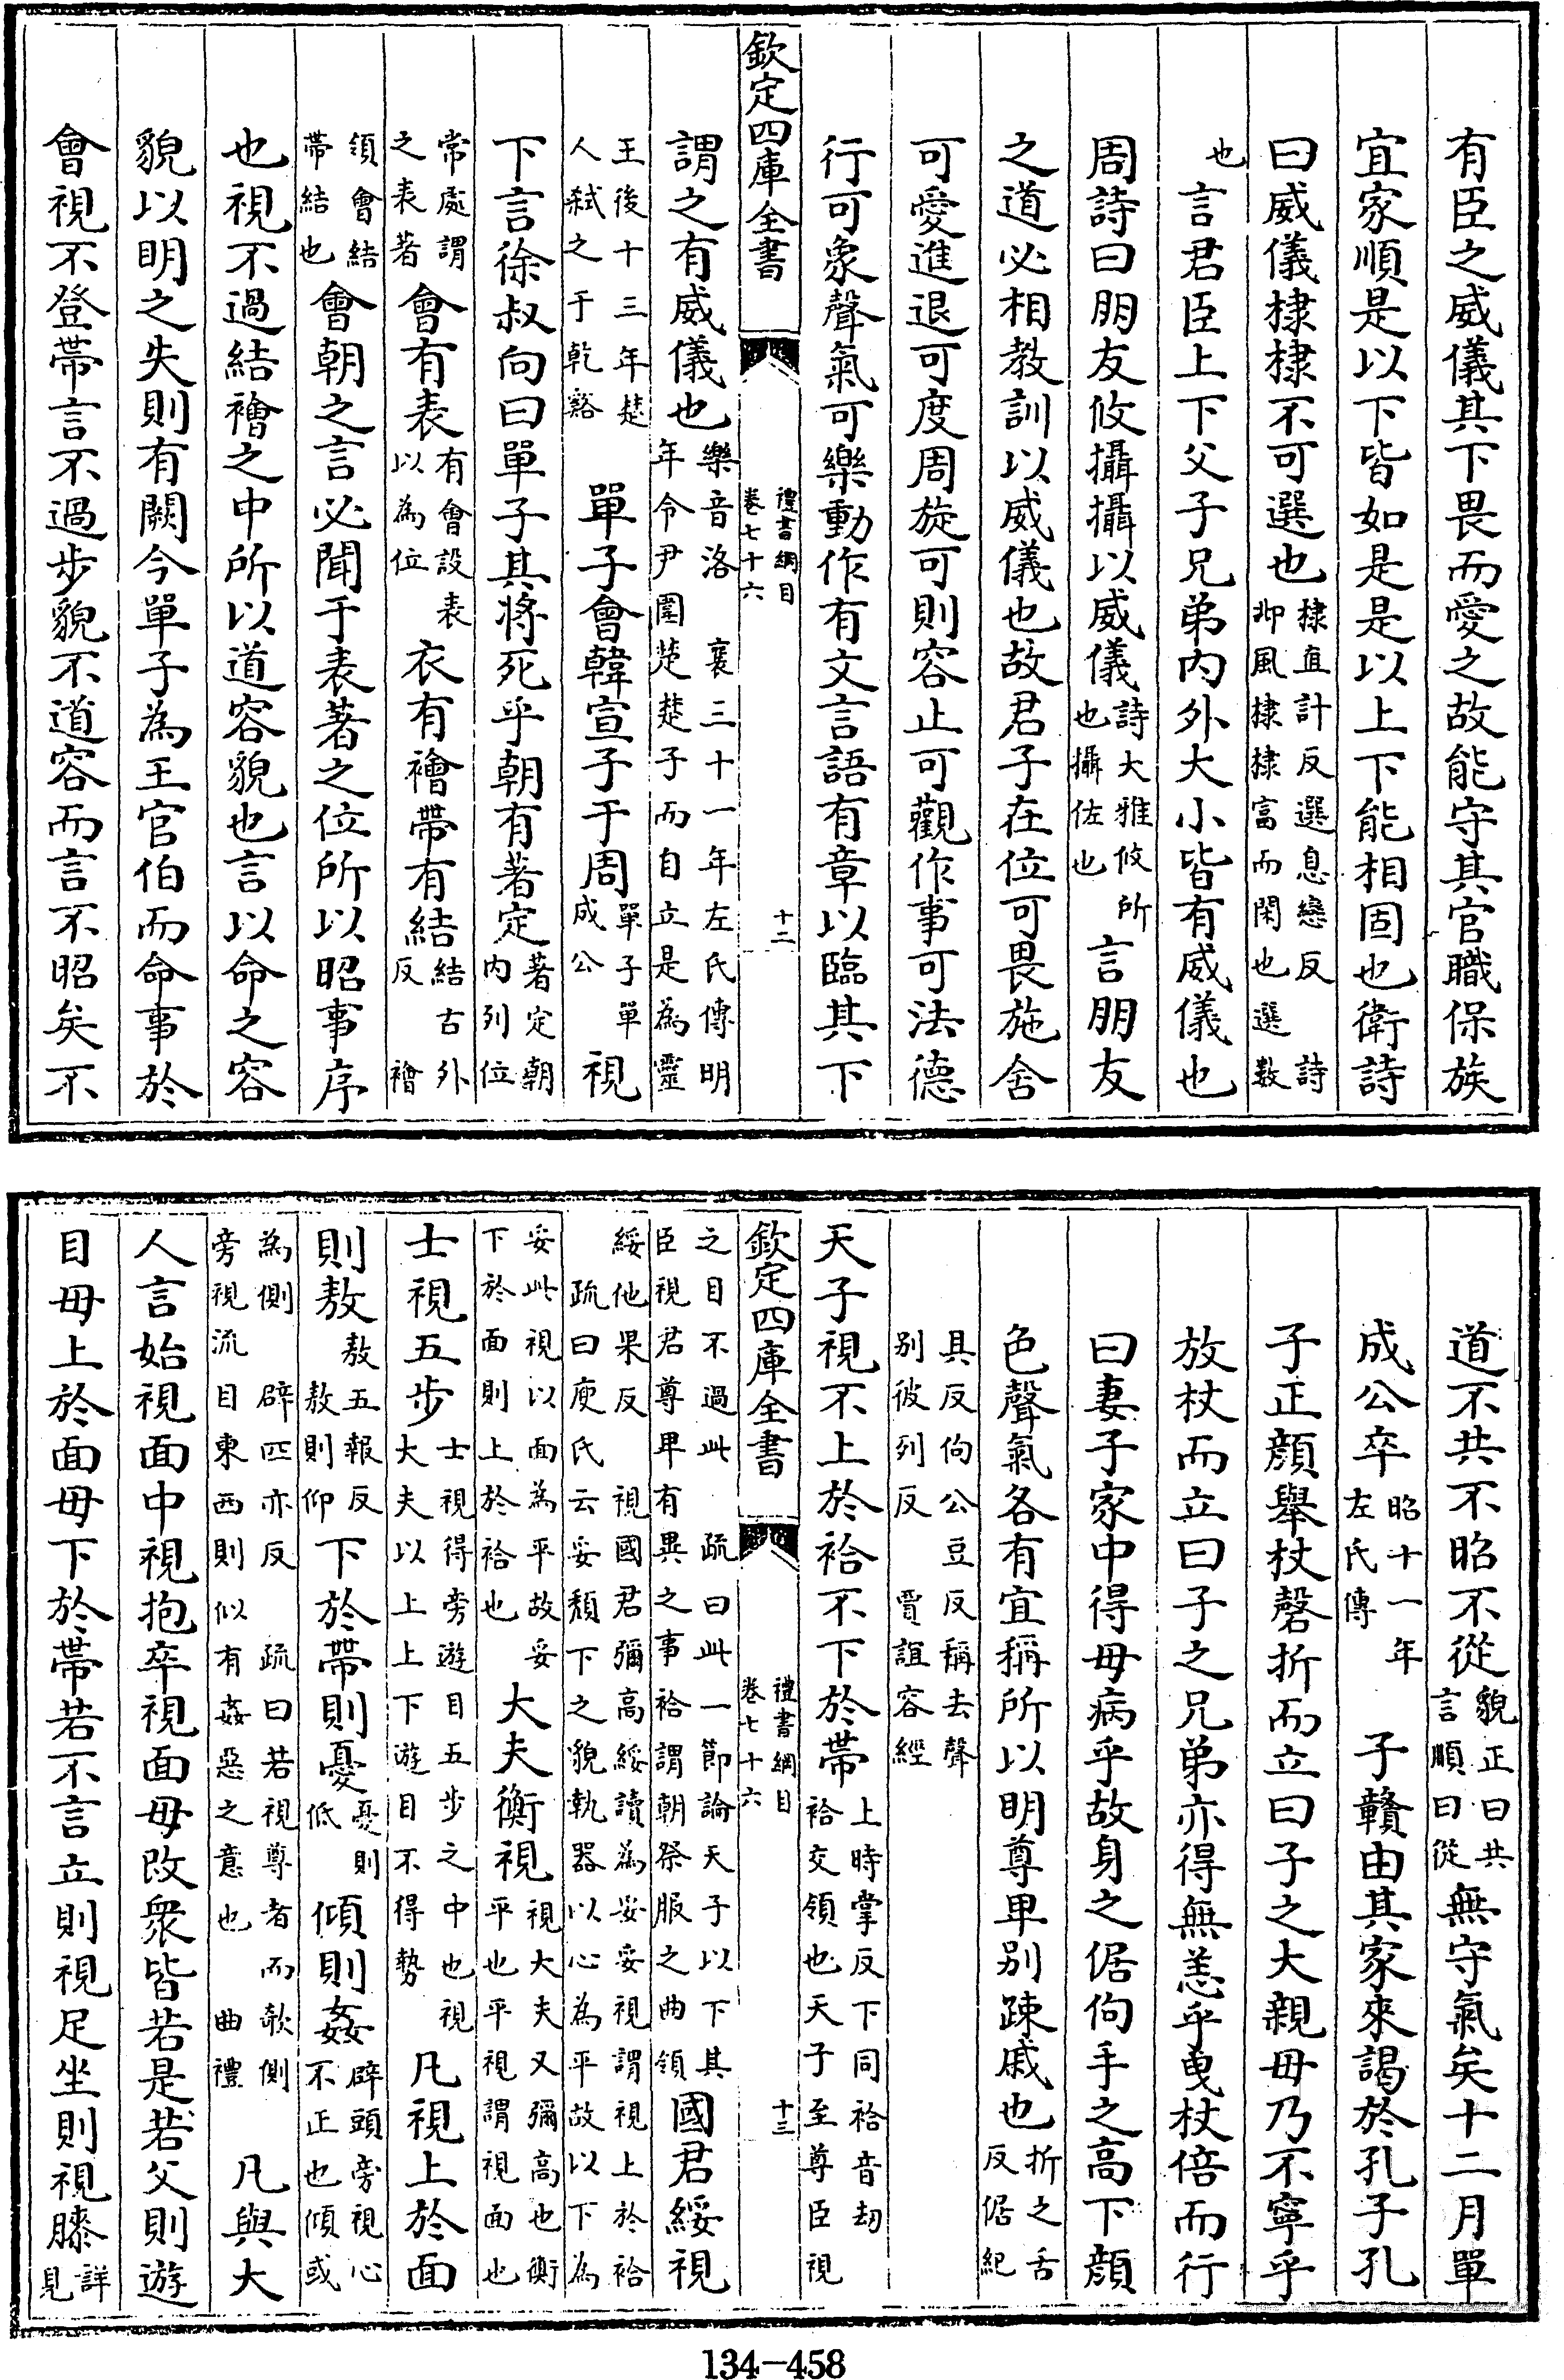 有臣之威儀其下畏而愛之故能守其官職保族
宜家順是以下皆如是是以上下能相固也衛詩
曰威儀棣棣不可選也棣直計反選息戀反　詩邶風棣棣富而閑也選數
也言君臣上下父子兄弟内外大小皆有威儀也
周詩曰朋友攸攝攝以威儀詩大雅攸所也攝佐也言朋友
之道必相教訓以威儀也故君子在位可畏施舍
可愛進退可度周旋可則容止可觀作事可法德
行可象聲氣可樂動作有文言語有章以臨其下
欽定四庫全書　禮書綱目卷七十六　十二
謂之有威儀也樂音洛　襄三十一年左氏傳明年令尹圍楚楚子而自立是為靈
王後十三年楚人弑之于乾谿　單子會韓宣子于周單子單成公視
下言徐叔向曰單子其將死乎朝有著定著定朝内列位
常處謂之表著會有表有會設表以為位衣有襘帶有結結古外反　襘
領會結帶結也會朝之言必聞于表著之位所以昭事序
也視不過結襘之中所以道容貌也言以命之容
貌以明之失則有闕今單子為王官伯而命事於
會視不登帶言不過步貌不道容而言不昭矣不
道不共不昭不從貌正曰共言順曰從無守氣矣十二月單
成公卒昭十一年左氏傳　子贛由其家來謁於孔子孔
子正顔舉杖磬折而立曰子之大親毋乃不寧乎
放杖而立曰子之兄弟亦得無恙乎曳杖倍而行
曰妻子家中得毋病乎故身之倨佝手之高下顔
色聲氣各有宜稱所以明尊卑别疎戚也折之舌反倨紀
具反佝公豆反稱去聲别彼列反　賈誼容經
天子視不上於袷不下於帶上時掌反下同袷音刧　袷交領也天子至尊臣視
欽定四庫全書　禮書綱目卷七十六　十三
之目不過此　疏曰此一節論天子以下其臣視君尊卑有異之事袷謂朝祭服之曲領國君綏視
綏他果反　視國君彌高綏讀為妥妥視謂視上於袷　疏曰庾氏云妥頹下之貌執器以心為平故以下為
妥此視以面為平故妥下於面則上於袷也　大夫衡視視大夫又彌高也衡平也平視謂視面也
士視五步士視得旁遊目五步之中也視大夫以上上下遊目不得勢　凡視上於面
則敖敖五報反　敖則仰下於帶則憂憂則低傾則姦辟頭旁視心不正也傾或
為側　辟匹亦反　疏曰若視尊者而欹側旁視流目東西則似有姦惡之意也　曲禮　凡與大
人言始視面中視抱卒視面毋改衆皆若是若父則遊
目毋上於面毋下於帶若不言立則視足坐則視膝詳見
134-458